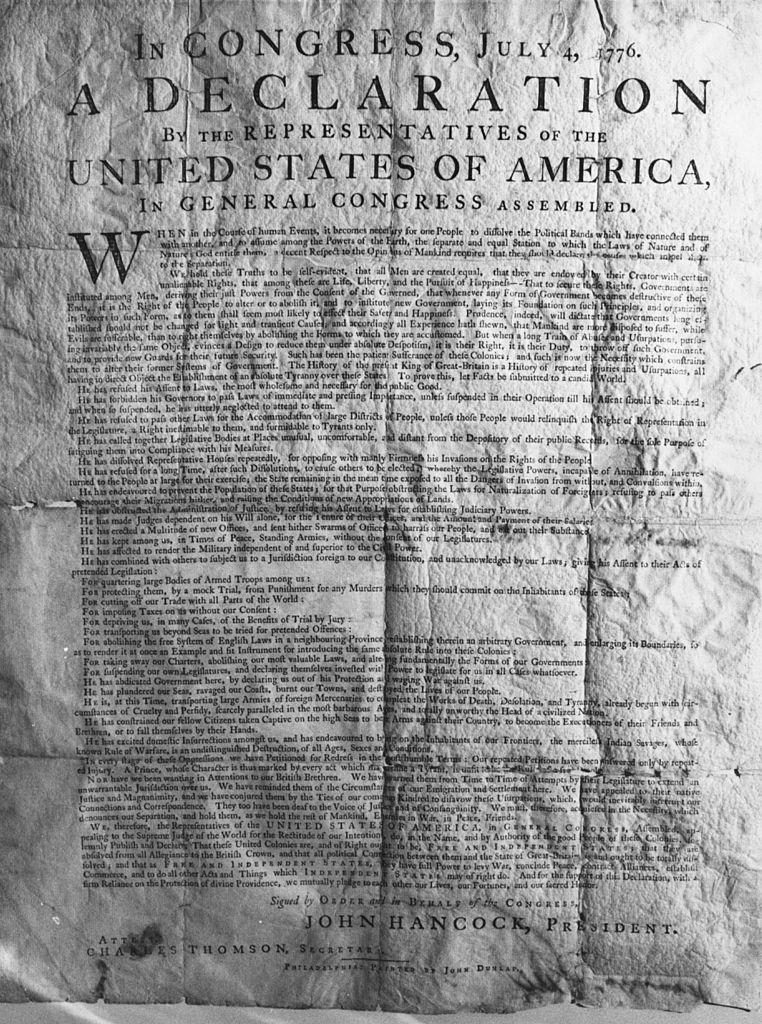 IN CONGRESS, JULY 4, 1776.
A DECLARATION
BY THE REPRESENTATIVES OF THE
UNITED STATES OF AMERICA,
IN GENERAL CONGRESS ASSEMBLED.
WHEN in the Course of human Events, it becomes necessary for one People to dissolve the Political Bands which have connected them
with another, and to assume among the Powers of the Earth, the separate and equal Station to which the Laws of Nature and of
Nature's God entitle them, a decent Respect to the Opinions of Mankind requires that they should declare the causes which impel them
to the Separation.
We hold these Truths to be self-evident, that all Men are created equal, that they are endowed by their Creator with certain
unalienable Rights, that among these are Life, Liberty, and the Pursuit of Happiness—-That to secure these Rights, Governments are
instituted among Men, deriving their just Powers from the Consent of the Governed, that whenever any Form of Government becomes destructive of these
Ends, it is the Right of the People to alter or to abolish it, and to institute new Government, laying its Foundation on such Principles, and organizing
its Powers in such Form, as to them shall seem most likely to effect their Safety and Happiness. Prudence, indeed, will dictate that Governments long es-
tablished should not be changed for light and transient Causes; and accordingly all Experience hath shewn, that Mankind are more disposed to suffer, while
Evils are sufferable, than to right themselves by abolishing the Forms to which they are accustomed. But when a long Train of Abuses and Usurpations, pursu-
ing invariably the same Object, evinces a Design to reduce them under absolute Despotism, it is their Right, it is their Duty, to throw off such Government,
and to provide new Guards for their future Security. Such has been the patient Sufferance of these Colonies; and such is now the Necessity which constrains
them to alter their former Systems of Government. The History of the present King of Great-Britain is a History of repeated Injuries and Usurpations, all
having in direct Object the Establishment of an absolute Tyranny over these States. To prove this, let Facts be submitted to a candid World.
He has refused his Assent to Laws, the most wholesome and necessary for the public Good.
He has forbidden his Governors to pass Laws of immediate and pressing Importance, unless suspended in their Operation till his Assent should be obtained;
and when so suspended, he has utterly neglected to attend to them.
He has refused to pass other Laws for the Accommodation of large Districts of People, unless those People would relinquish the Right of Representation in
the Legislature, a Right inestimable to them, and formidable to Tyrants only.
He has called together Legislative Bodies at Places unusual, uncomfortable, and distant from the Depository of their public Records, for the sole Purpose of
fatiguing them into Compliance with his Measures.
He has dissolved Representative Houses repeatedly, for opposing with manly Firmness his Invasions on the Rights of the People.
He has refused for a long Time, after such Dissolutions, to cause others to be elected; whereby the Legislative Powers, incapable of Annihilation, have re-
turned to the People at large for their exercise; the State remaining in the mean time exposed to all the Dangers of Invasion from without, and Convulsions within.
He has endeavoured to prevent the Population of these States; for that Purpose obstructing the Laws for Naturalization of Foreigners; refusing to pass others
to encourage their Migrations hither, and raising the Conditions of new Appropriations of Lands.
He has obstructed the Administration of Justice, by refusing his Assent to Laws for establishing Judiciary Powers.
He has made Judges dependent on his Will alone, for the Tenure of their Offices, and the Amount and Payment of their Salaries.
He has erected a Multitude of new Offices, and sent hither Swarms of Officers to harrass our People, and eat out their Substance.
He has kept among us, in Times of Peace, Standing Armies, without the consent of our Legislatures.
He has affected to render the Military independent of and superior to the Civil Power.
He has combined with others to subject us to a Jurisdiction foreign to our Constitution, and unacknowledged by our Laws; giving his Assent to their Acts of
pretended Legislation:
For quartering large Bodies of Armed Troops among us:
For protecting them, by a mock Trial, from Punishment for any Murders which they should commit on the Inhabitants of these States:
For cutting off our Trade with all Parts of the World:
For imposing Taxes on us without our Consent:
For depriving us, in many Cases, of the Benefits of Trial by Jury:
For transporting us beyond Seas to be tried for pretended Offences:
For abolishing the free System of English Laws in a neighbouring Province, establishing therein an arbitrary Government, and enlarging its Boundaries, so
as to render it at once an Example and fit Instrument for introducing the same absolute Rule into these Colonies:
For taking away our Charters, abolishing our most valuable Laws, and altering fundamentally the Forms of our Governments:
For suspending our own Legislatures, and declaring themselves invested with Power to legislate for us in all Cases whatsoever.
He has abdicated Government here, by declaring us out of his Protection and waging War against us.
He has plundered our Seas, ravaged our Coasts, burnt our Towns, and destroyed the Lives of our People.
He is, at this Time, transporting large Armies of foreign Mercenaries to compleat the Works of Death, Desolation, and Tyranny, already begun with cir-
cumstances of Cruelty and Perfidy, scarcely paralleled in the most barbarous Ages, and totally unworthy the Head of a civilized Nation.
He has constrained our fellow Citizens taken Captive on the high Seas to bear Arms against their Country, to become the Executioners of their Friends and
Brethren, or to fall themselves by their Hands.
He has excited domestic Insurrections amongst us, and has endeavoured to bring on the Inhabitants of our Frontiers, the merciless Indian Savages, whose
known Rule of Warfare, is an undistinguished Destruction, of all Ages, Sexes and Conditions.
In every stage of these Oppressions we have Petitioned for Redress in the most humble Terms: Our repeated Petitions have been answered only by repeat-
ed Injury. A Prince, whose Character is thus marked by every act which may define a Tyrant, is unfit to be the Ruler of a free People.
Nor have we been wanting in Attentions to our British Brethren. We have warned them from Time to Time of Attempts by their Legislature to extend an
unwarrantable Jurisdiction over us. We have reminded them of the Circumstances of our Emigration and Settlement here. We have appealed to their native
Justice and Magnanimity, and we have conjured them by the Ties of our common Kindred to disavow these Usurpations, which, would inevitably interrupt our
Connections and Correspondence. They too have been deaf to the Voice of Justice and of Consanguinity. We must, therefore, acquiesce in the Necessity, which
denounces our Separation, and hold them, as we hold the rest of Mankind, Enemies in War, in Peace, Friends.
We, therefore, the Representatives of the UNITED STATES OF AMERICA, in GENERAL CONGRESS, Assembled, ap-
pealing to the Supreme Judge of the World for the Rectitude of our Intentions, do, in the Name, and by Authority of the good People of these Colonies, so-
lemnly Publish and Declare, That these United Colonies are, and of Right ought to be, FREE AND INDEPENDENT STATES; that they are
absolved from all Allegiance to the British Crown, and that all political Connection between them and the State of Great-Britain, is and ought to be totally dis-
solved; and that as FREE AND INDEPENDENT STATES, they have full Power to levy War, conclude Peace, contract Alliances, establish
Commerce, and to do all other Acts and Things which INDEPENDENT STATES may of right do. And for the support of this Declaration, with a
firm Reliance on the Protection of divine Providence, we mutually pledge to each other our Lives, our Fortunes, and our sacred Honor.
Signed by ORDER and in BEHALF of the CONGRESS,
JOHN HANCOCK, PRESIDENT.
ATTEST.
CHARLES THOMSON, SECRETARY.
PHILADELPHIA: PRINTED BY JOHN DUNLAP.